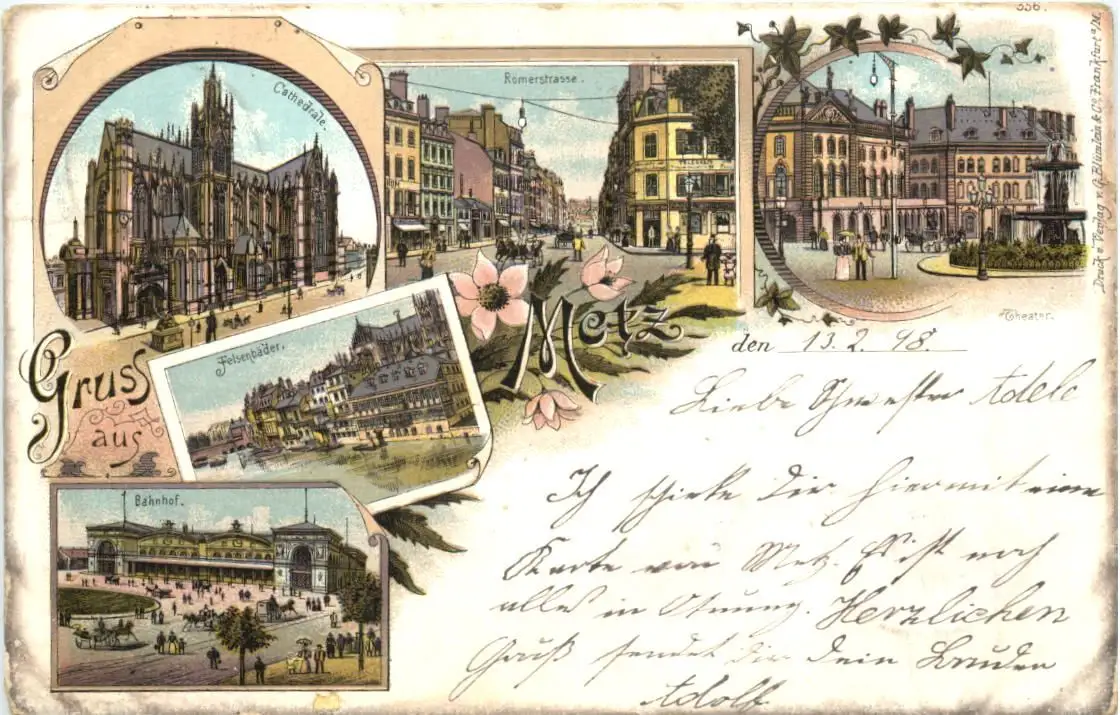 556.
Cathedrale.
Römerstrasse.
Theater.
Druck u. Verlag v. A. Blümlein & Co. Frankfurt a/M.
Gruss
aus
Metz
Felsenbäder.
Bahnhof.
den 13.2.98
Liebe Schwester Adele
Ich schicke Dir hiermit eine
Karte von Metz. Es ist noch
alles in Ordnung. Herzlichen
Gruß sendet Dir Dein Bruder
Adolf